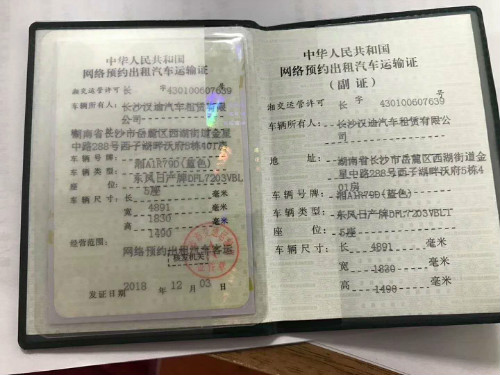 中华人民共和国
网络预约出租汽车运输证
湘交运管许可 长 字 430100607639 号
车辆所有人: 长沙汉迪汽车租赁有限
公司
湖南省长沙市岳麓区西湖街道金星
中路288号西子湖畔沃府5栋401房
车辆号牌: 湘A1R79D(蓝色)
车辆类型: 东风日产牌DFL7203VBL
座 位: 5座
车辆尺寸: 长 4891 毫米
宽 1830 毫米
高 1490 毫米
经营范围: 网络预约出租汽车客运
核发机关
发证日期 2018 年 12 月 03 日
中华人民共和国
网络预约出租汽车运输证
(副证)
湘交运管许可 长 字 430100607639 号
车辆所有人: 长沙汉迪汽车租赁有限公
司
地 址: 湖南省长沙市岳麓区西湖街道金
星中路288号西子湖畔沃府5栋4
01房
车辆号牌: 湘A1R79D(蓝色)
车辆类型: 东风日产牌DFL7203VBL1
座 位: 5座
车辆尺寸: 长 4891 毫米
宽 1830 毫米
高 1490 毫米